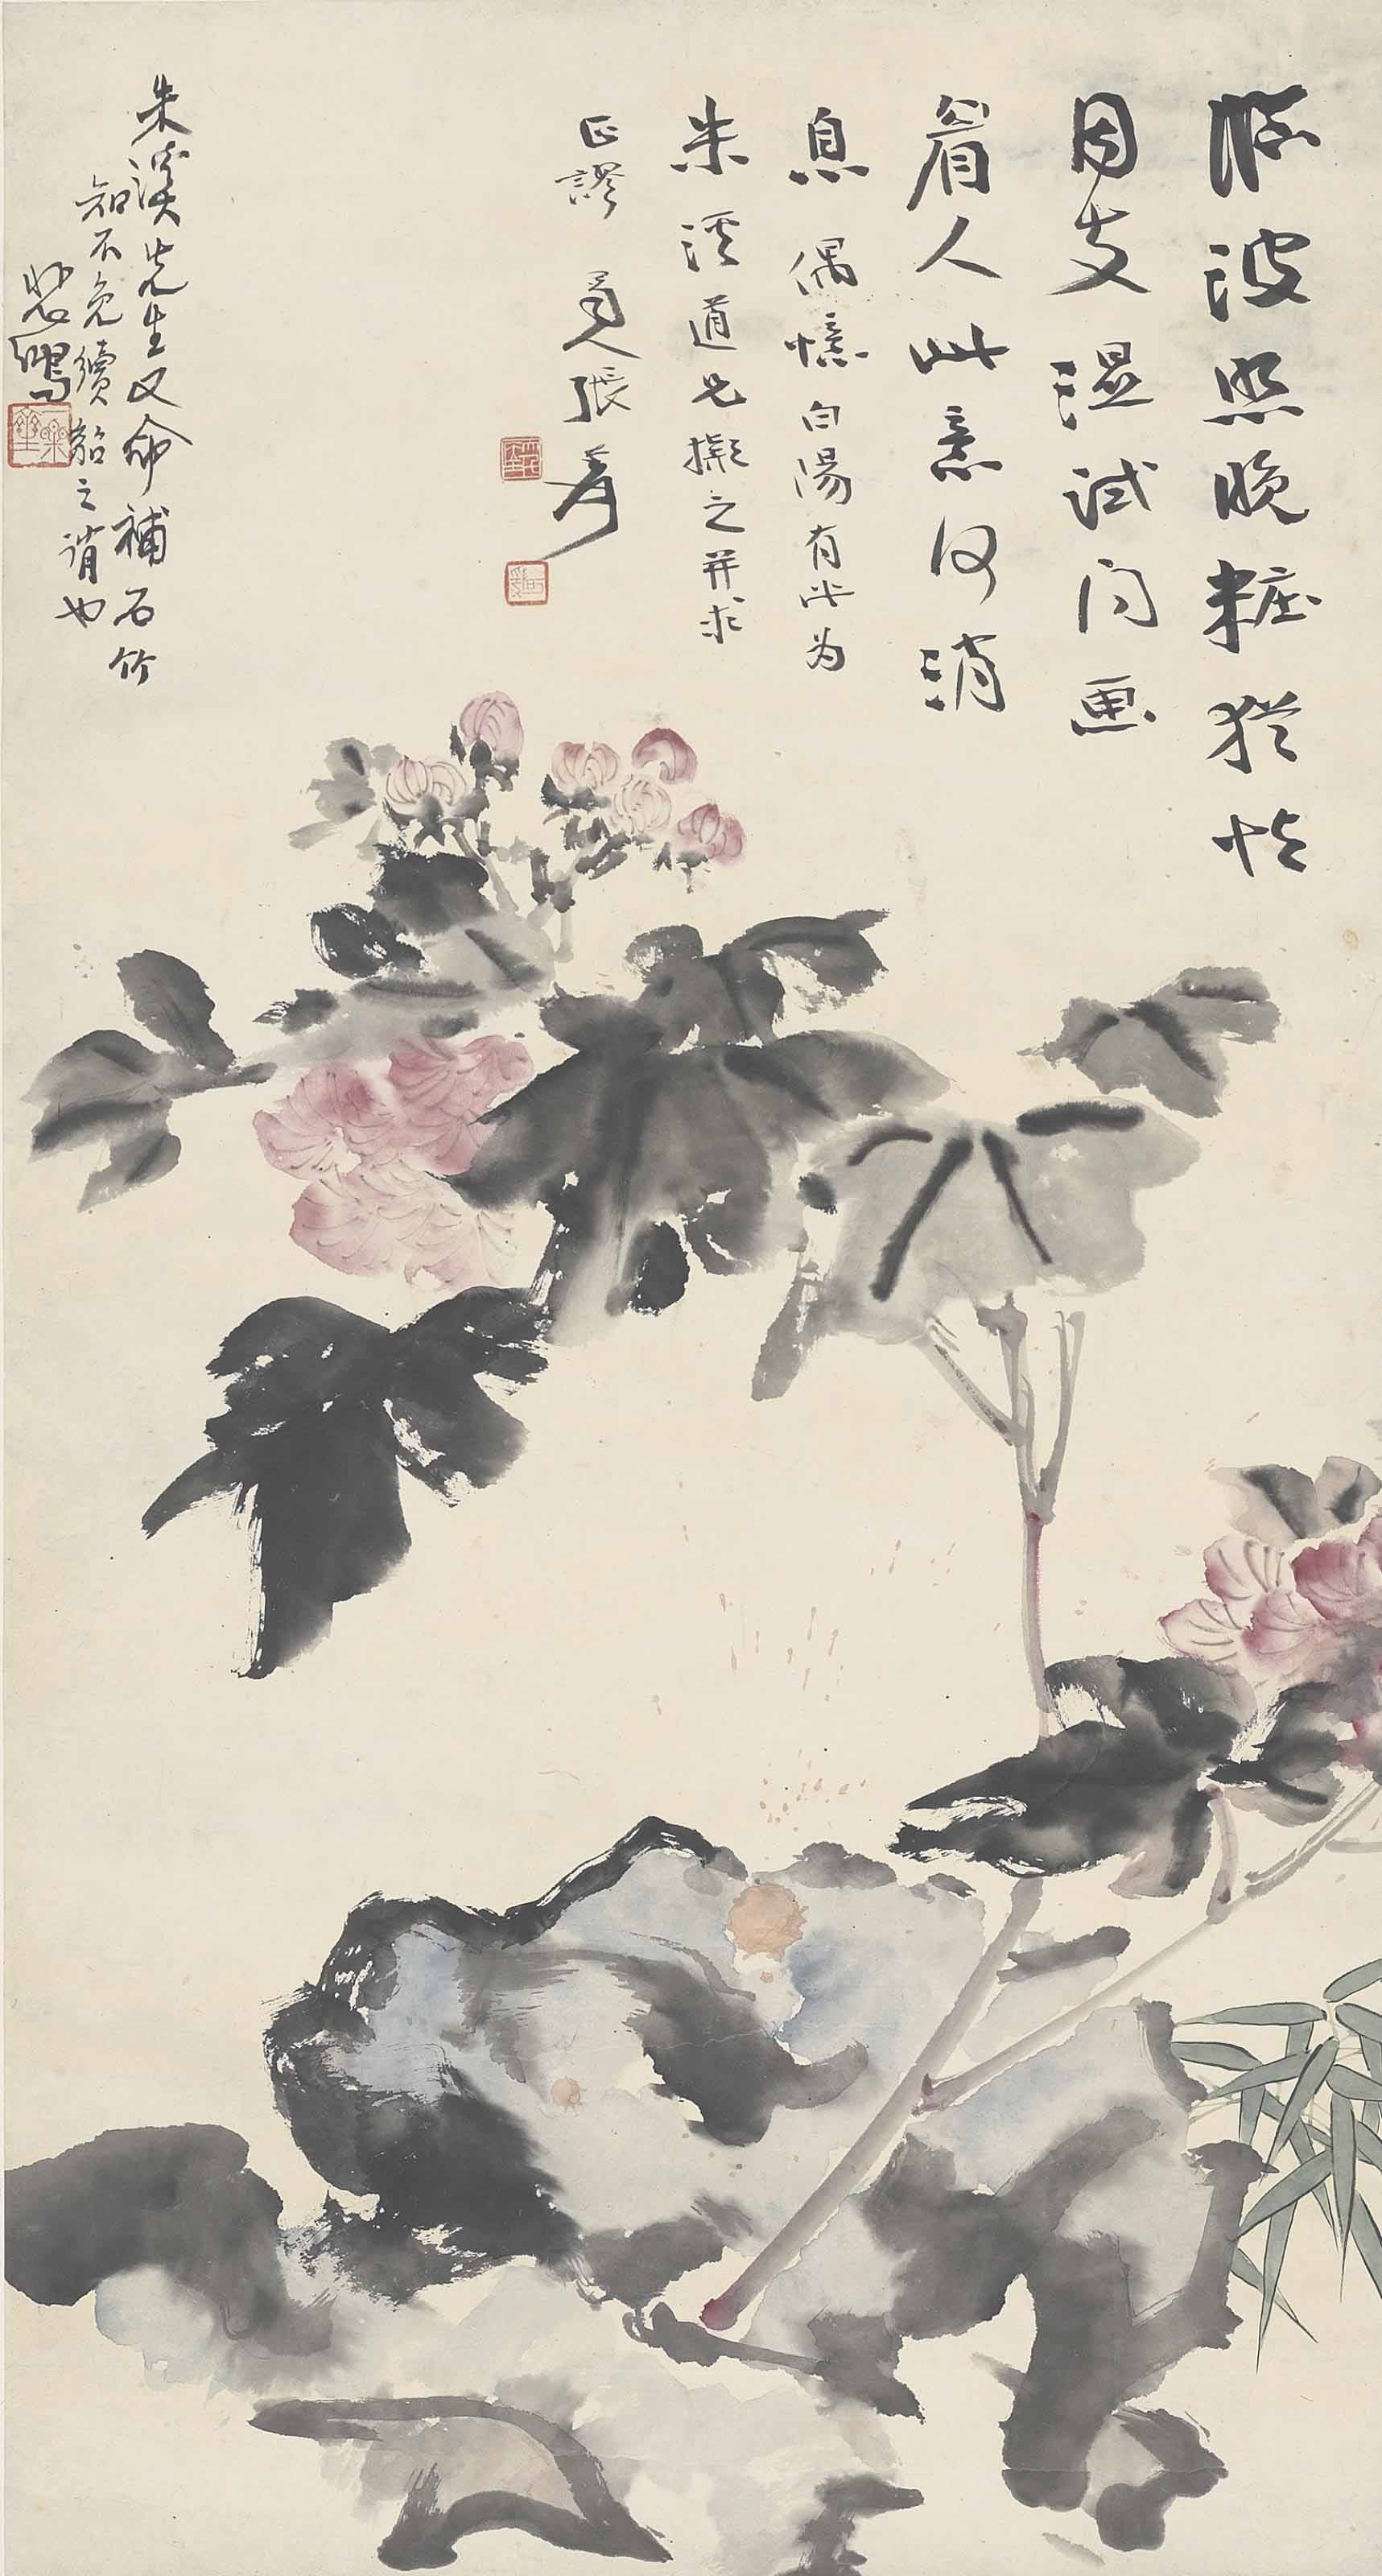 臨波照晚粧猶怯
因支湿試问画
眉人此意何消
息 偶憶白陽有此为
朱溪道兄擬之并求
正謬 蜀人張爰
朱溪先生又命補石竹
知不免續貂之誚也
悲鴻